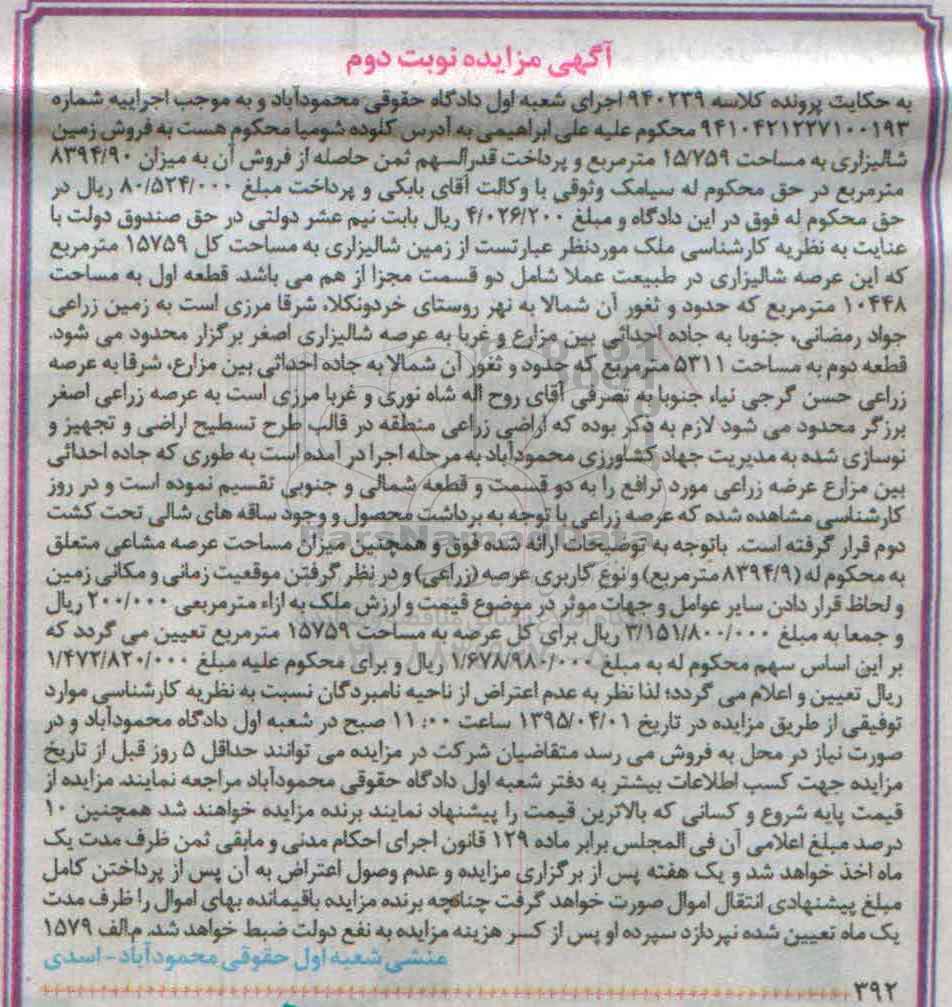 آگهی مزایده نوبت دوم
به حکایت پرونده کلاسه ۹۴۰۲۳۹ اجرای شعبه اول دادگاه حقوقی محمودآباد و به موجب اجراییه شماره
۹۴۱۰۴۲۱۲۲۷۱۰۰۱۹۳ محکوم علیه علی ابراهیمی به آدرس کلوده شومیا محکوم هست به فروش زمین
شالیزاری به مساحت ۱۵/۷۵۹ مترمربع و پرداخت قدرالسهم ثمن حاصله از فروش آن به میزان ۸۳۹۴/۹۰
مترمربع در حق محکوم له سیامک وثوقی با وکالت آقای بابکی و پرداخت مبلغ ۸۰/۵۲۴/۰۰۰ ریال در
حق محکوم له فوق در این دادگاه و مبلغ ۴/۰۲۶/۲۰۰ ریال بابت نیم عشر دولتی در حق صندوق دولت با
عنایت به نظریه کارشناسی ملک موردنظر عبارتست از زمین شالیزاری به مساحت کل ۱۵۷۵۹ مترمربع
که این عرصه شالیزاری در طبیعت عملا شامل دو قسمت مجزا از هم می باشد. قطعه اول به مساحت
۱۰۴۴۸ مترمربع که حدود و ثغور آن شمالا به نهر روستای خردونکلا، شرقا مرزی است به زمین زراعی
جواد رمضانی، جنوبا به جاده احداثی بین مزارع و غربا به عرصه شالیزاری اصغر برگزار محدود می شود.
قطعه دوم به مساحت ۵۳۱۱ مترمربع که حدود و ثغور آن شمالا به جاده احداثی بین مزارع، شرقا به عرصه
زراعی حسن گرجی نیا، جنوبا به تصرفی آقای روح اله شاه نوری و غربا مرزی است به عرصه زراعی اصغر
برزگر محدود می شود لازم به ذکر بوده که اراضی زراعی منطقه در قالب طرح تسطیح اراضی و تجهیز و
نوسازی شده به مدیریت جهاد کشاورزی محمودآباد به مرحله اجرا در آمده است به طوری که جاده احداثی
بین مزارع عرضه زراعی مورد ترافع را به دو قسمت و قطعه شمالی و جنوبی تقسیم نموده است و در روز
کارشناسی مشاهده شده که عرصه زراعی با توجه به برداشت محصول و وجود ساقه های شالی تحت کشت
دوم قرار گرفته است. باتوجه به توضیحات ارائه شده فوق و همچنین میزان مساحت عرصه مشاعی متعلق
به محکوم له (۸۳۹۴/۹ مترمربع) و نوع کاربری عرصه (زراعی) و در نظر گرفتن موقعیت زمانی و مکانی زمین
و لحاظ قرار دادن سایر عوامل و جهات موثر در موضوع قیمت و ارزش ملک به ازاء مترمربعی ۲۰۰/۰۰۰ ریال
و جمعا به مبلغ ۳/۱۵۱/۸۰۰/۰۰۰ ریال برای کل عرصه به مساحت ۱۵۷۵۹ مترمربع تعیین می گردد که
بر این اساس سهم محکوم له به مبلغ ۱/۶۷۸/۹۸۰/۰۰۰ ریال و برای محکوم علیه مبلغ ۱/۴۷۲/۸۲۰/۰۰۰
ریال تعیین و اعلام می گردد؛ لذا نظر به عدم اعتراض از ناحیه نامبردگان نسبت به نظریه کارشناسی موارد
توفیقی از طریق مزایده در تاریخ ۱۳۹۵/۰۴/۰۱ ساعت ۱۱:۰۰ صبح در شعبه اول دادگاه محمودآباد و در
صورت نیاز در محل به فروش می رسد متقاضیان شرکت در مزایده می توانند حداقل ۵ روز قبل از تاریخ
مزایده جهت کسب اطلاعات بیشتر به دفتر شعبه اول دادگاه حقوقی محمودآباد مراجعه نمایند. مزایده از
قیمت پایه شروع و کسانی که بالاترین قیمت را پیشنهاد نمایند برنده مزایده خواهند شد همچنین ۱۰
درصد مبلغ اعلامی آن فی المجلس برابر ماده ۱۲۹ قانون اجرای احکام مدنی و مابقی ثمن ظرف مدت یک
ماه اخذ خواهد شد و یک هفته پس از برگزاری مزایده و عدم وصول اعتراض به آن پس از پرداختن کامل
مبلغ پیشنهادی انتقال اموال صورت خواهد گرفت چنانچه برنده مزایده باقیمانده بهای اموال را ظرف مدت
یک ماه تعیین شده نپردازد سپرده او پس از کسر هزینه مزایده به نفع دولت ضبط خواهد شد. م/الف ۱۵۷۹
منشی شعبه اول حقوقی محمودآباد - اسدی
۳۹۲
ParsNamadData